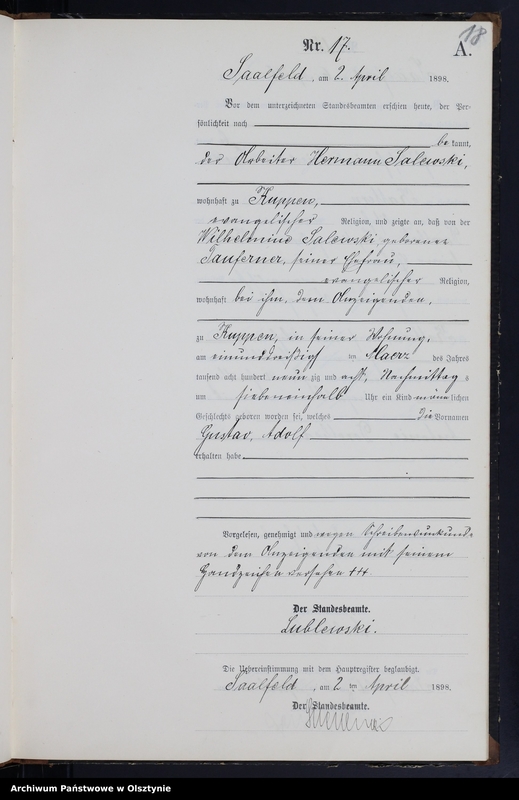 18
Nr. 17.
A.
Saalfeld, am 2. April 1898.
Vor dem unterzeichneten Standesbeamten erschien heute, der Per-
sönlichkeit nach
be kannt,
der Arbeiter Hermann Salewski,
wohnhaft zu Kuppen,
evangelischer Religion, und zeigte an, daß von der
Wilhelmine Salewski, geborenen
seiner Ehefrau,
evangelischer Religion,
wohnhaft bei ihm, dem Anzeigenden,
zu Kuppen, in seiner Wohnung,
am einunddreißigsten Maerz des Jahres
tausend acht hundert neunzig und acht, Nachmittags
um siebeneinhalb Uhr ein Kind männlichen
Geschlechts geboren worden sei, welches die Vornamen
Gustav, Adolf
erhalten habe
Vorgelesen, genehmigt und wegen Schreibensunkunde
von dem Anzeigenden mit seinem
Handzeichen versehen +++
Der Standesbeamte.
Lublewski.
Die Uebereinstimmung mit dem Hauptregister beglaubigt.
Saalfeld, am 2 ten April 1898.
Der Standesbeamte.
Archiwum Państwowe w Olsztynie